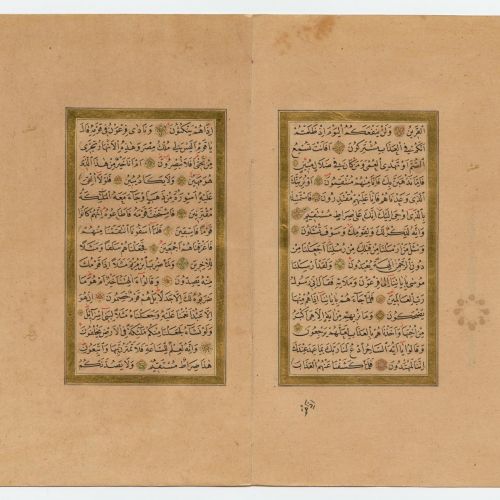 القرين ولن ينفعكم اليوم اذ ظلمتم
انكم في العذاب مشتركون افانت تسمع
الصم او تهدي العمي ومن كان في ضلال مبين
فاما نذهبن بك فانا منهم منتقمون او نرينك
الذي وعدناهم فانا عليهم مقتدرون فاستمسك
بالذي اوحي اليك انك على صراط مستقيم
وانه لذكر لك ولقومك وسوف تسئلون
وسئل من ارسلنا من قبلك من رسلنا اجعلنا من
دون الرحمن الهة يعبدون ولقد ارسلنا
موسى باياتنا الى فرعون وملائه فقال اني رسول
رب العالمين فلما جاءهم باياتنا اذا هم منها
يضحكون وما نريهم من اية الا هي اكبر
من اختها واخذناهم بالعذاب لعلهم يرجعون
وقالوا يا ايه الساحر ادع لنا ربك بما عهد عندك
اننا لمهتدون فلما كشفنا عنهم العذاب
اذا هم
اذا هم ينكثون ونادى فرعون في قومه قال
يا قوم اليس لي ملك مصر وهذه الانهار تجري
من تحتي افلا تبصرون ام انا خير من هذا الذي
هو مهين ولا يكاد يبين فلولا القي
عليه اسورة من ذهب او جاء معه الملئكة
مقترنين فاستخف قومه فاطاعوه انهم كانوا
قوما فاسقين فلما اسفونا انتقمنا منهم
فاغرقناهم اجمعين فجعلناهم سلفا ومثلا
للاخرين ولما ضرب ابن مريم مثلا اذا قومك
منه يصدون وقالوا ءالهتنا خير ام هو ما
ضربوه لك الا جدلا بل هم قوم خصمون ان هو
الا عبد انعمنا عليه وجعلناه مثلا لبني اسرائيل
ولو نشاء لجعلنا منكم ملئكة في الارض يخلفون
وانه لعلم للساعة فلا تمترن بها واتبعون
هذا صراط مستقيم ولا يصدنكم